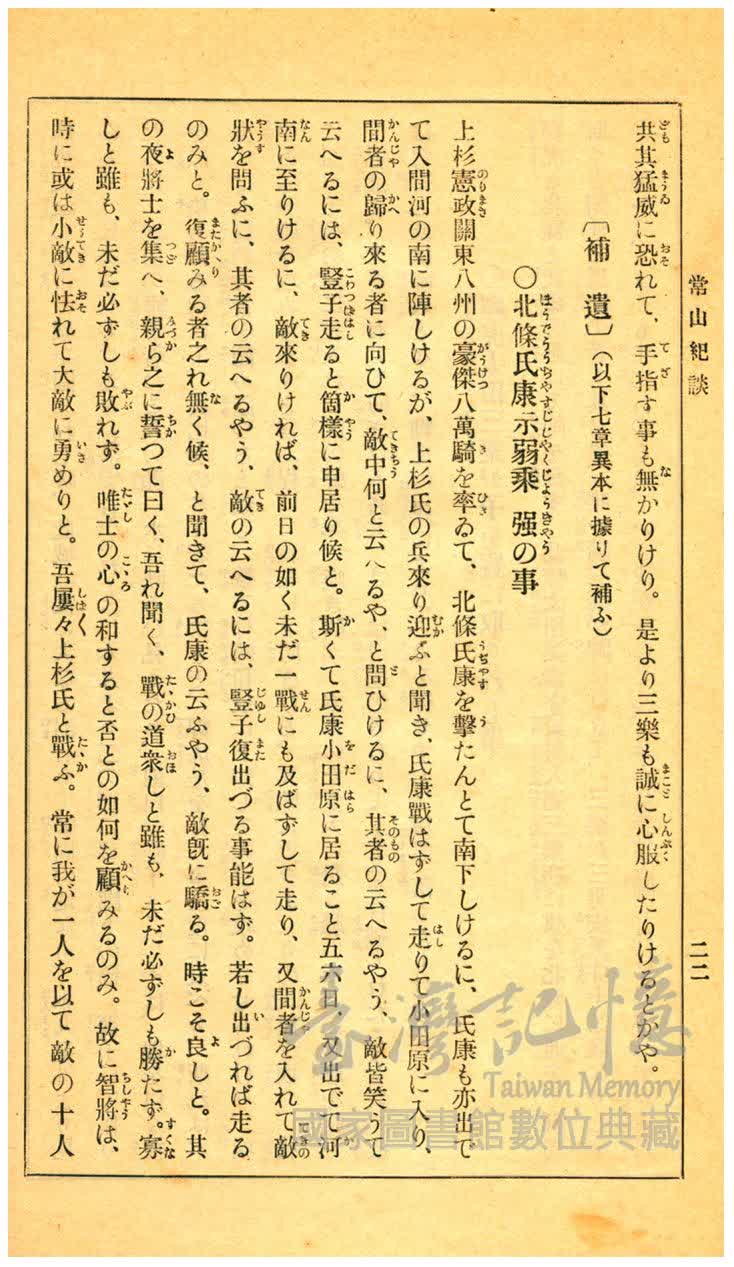 常山紀談
二二
共其猛威に恐れて、手指す事も無かりけり。是より三樂も誠に心服したりけるとかや。
〔補遺〕（以下七章異本に據りて補ふ）
○北條氏康示弱乘强の事
上杉憲政關東八州の豪傑八萬騎を率ゐて、北條氏康を擊たんとて南下しけるに、氏康も亦出で
て入間河の南に陣しけるが、上杉氏の兵來り迎ふと聞き、氏康戰はずして走りて小田原に入り、
間者の歸り來る者に向ひて、敵中何と云へるや、と問ひけるに、其者の云へるやう、敵皆笑うて
云へるには、豎子走ると箇樣に申居り候と。斯くて氏康小田原に居ること五六日、又出でて河
南に至りけるに、敵來りければ、前日の如く未だ一戰にも及ばずして走り、又間者を入れて敵
狀を問ふに、其者の云へるやう、敵の云へるには、豎子復出づる事能はず。若し出づれば走る
のみと。復顧みる者之れ無く候、と聞きて、氏康の云ふやう、敵旣に驕る。時こそ良しと。其
の夜將士を集へ、親ら之に誓つて曰く、吾れ聞く、戰の道衆しと雖も、未だ必ずしも勝たず。寡
しと雖も、未だ必ずしも敗れず。唯士の心の和すると否との如何を顧みるのみ。故に智將は、
時に或は小敵に怯れて大敵に勇めりと。吾屢々上杉氏と戰ふ。常に我が一人を以て敵の十人
臺灣記憶
Taiwan Memory
國家圖書館數位典藏